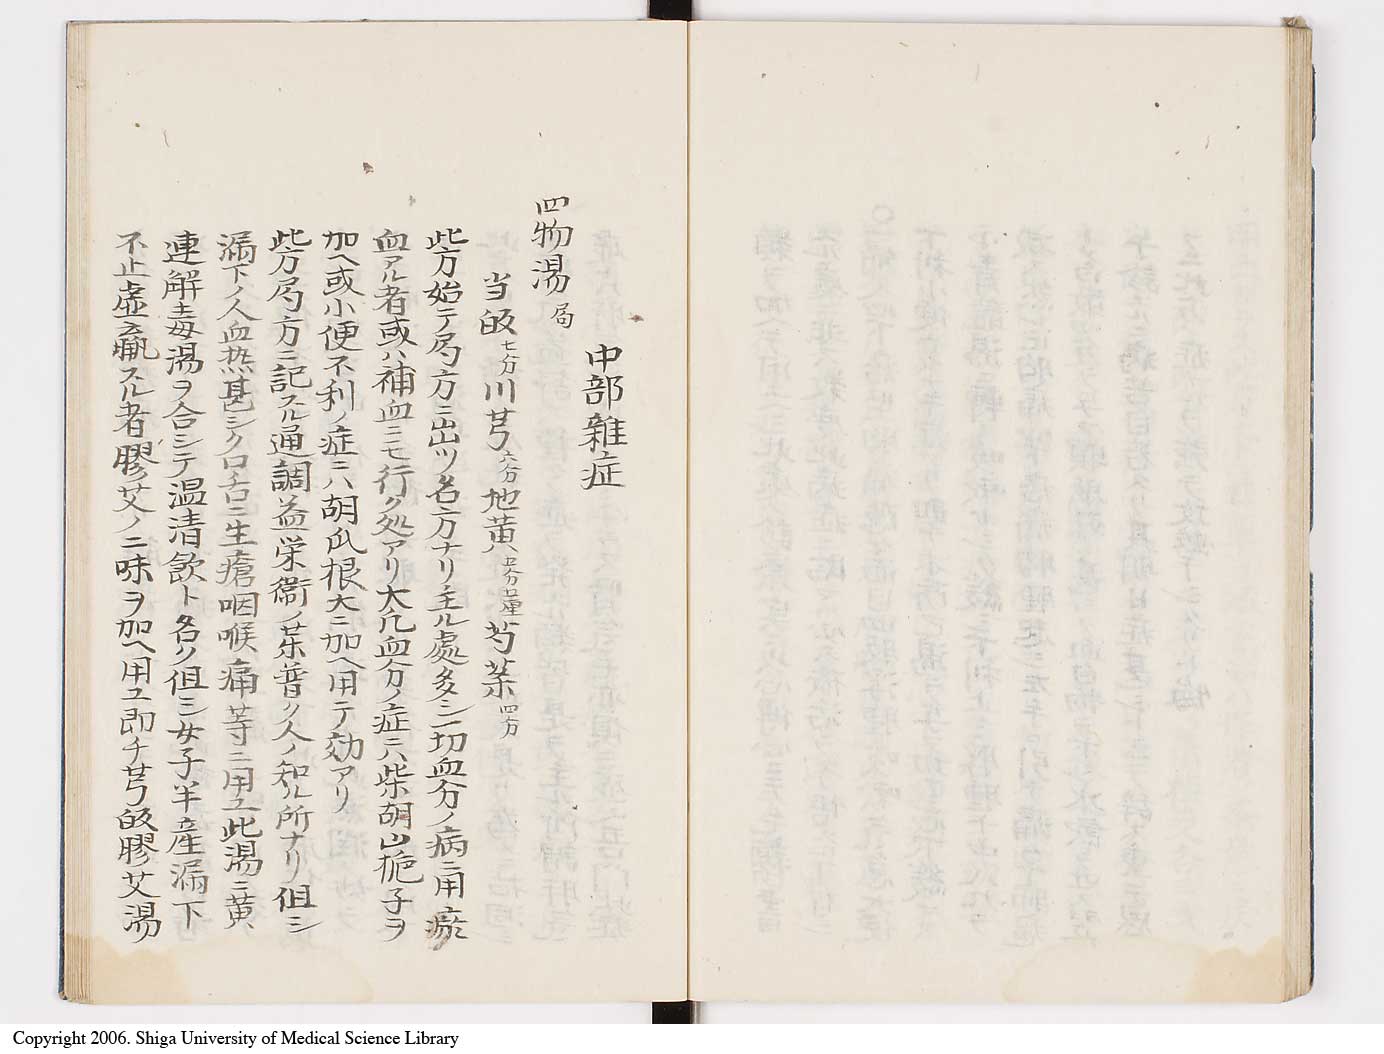 中部雑症
四物湯 局
当皈七分川芎六分地黄芍薬四分
此方始テ局方ニ出ツ名方ナリ主ル處多シ一切血分ノ病ニ用瘀
血アル者或ハ補血ニモ行ク処アリ大凡血分ノ症ニハ柴胡山梔子ヲ
加ヘ或小便不利ノ症ニハ胡瓜根大ニ加ヘ用テ効アリ
此方局方ニ記スル通調益栄衞ノ薬普ク人ノ知ル所ナリ但シ
漏下ノ人血熱甚シク口舌ニ生瘡咽喉痛等ニ用ユ此湯ニ黄
連解毒湯ヲ合シテ温清飲ト名ク但シ女子半産漏下
不止虚羸スル者膠艾ノ二味ヲ加ヘ用ユ即チ芎皈膠艾湯
Copyright 2006. Shiga University of Medical Science Library